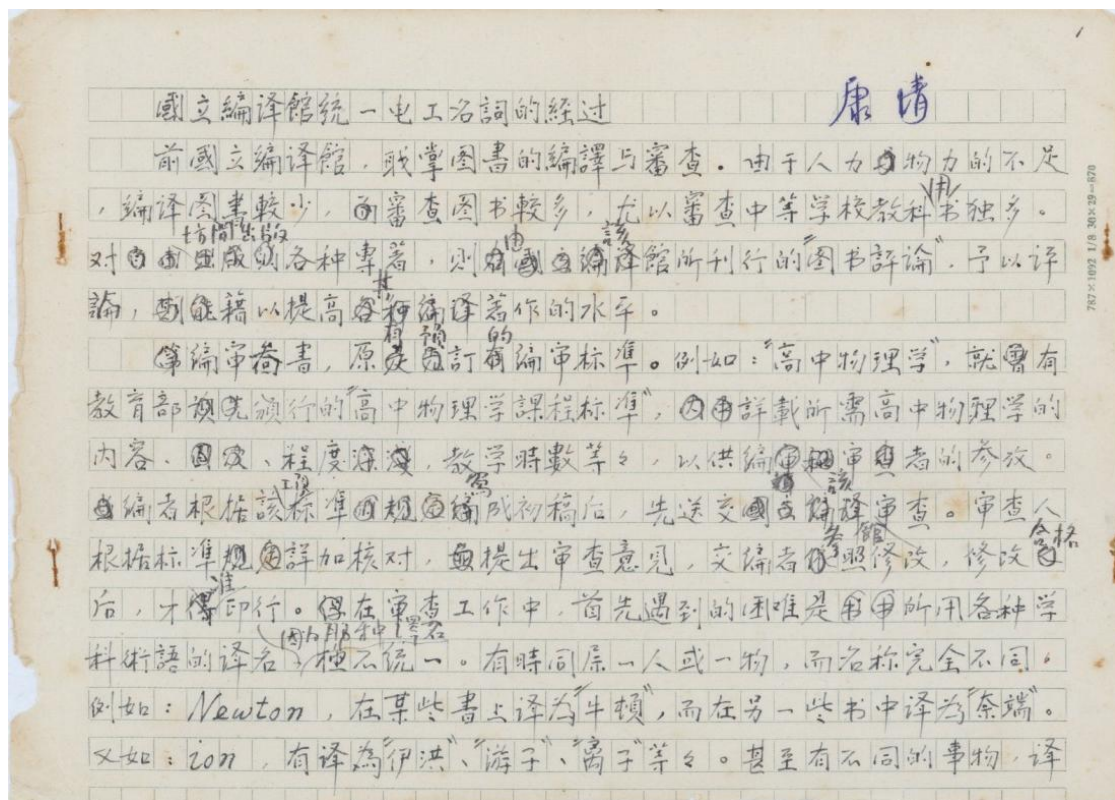 1
康清
國立編译館統一电工名詞的経过
前國立編译館，职掌图書的編譯与審查。由于人力物力的不足
，編译图書較少，審查图书較多，尤以審查中等学校教科用书独多。
对坊間出版各种專著，則由該館所刊行的"图书評論"，予以评
論，藉以提高其編译著作的水平。
編审書，原有預訂的編审标準。例如："高中物理学"，就有
教育部頒行的"高中物理学課程标準"，詳載所需高中物理学的
内容、程度，教学時數等々，以供編审者的参攷。
編者根据該标準寫成初稿后，先送交該館审查。审查人
根据标準詳加核对，提出审查意見，交編者参照修改，修改合格
后，才准印行。在审查工作中，首先遇到的困难是所用各种学
科術語的译名，極不統一。有時同属一人或一物，而名称完全不同。
例如：Newton，在某些書上译為"牛頓"，而在另一些书中译為"奈端"。
又如：ion，有译為"伊洪"、"游子"、"离子"等々。甚至有不同的事物，译
787×1092 1/8 30×29=870